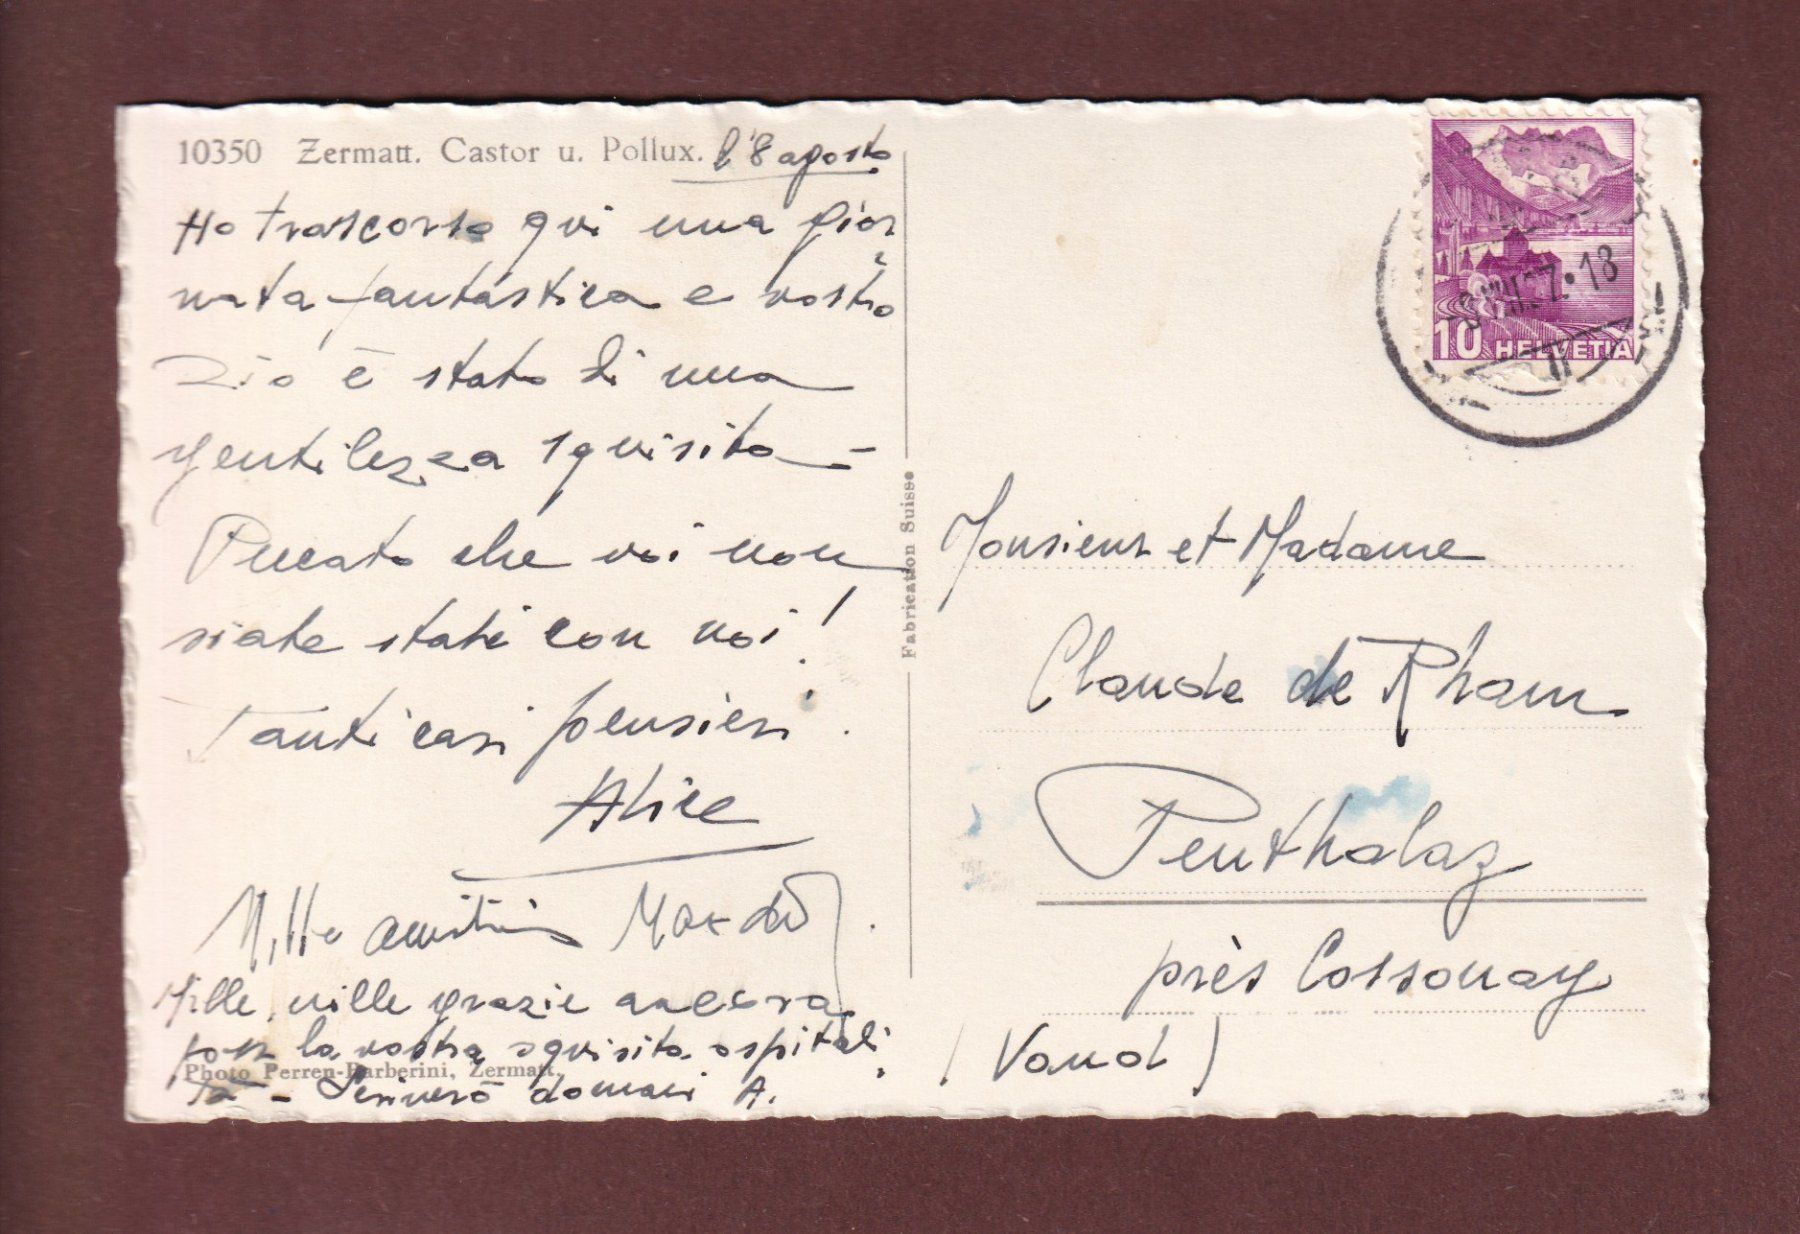 10350 Zermatt. Castor u. Pollux.
l'8 agosto
Ho trascorso qui una gior
nata fantastica e vostro
zio è stato di una
gentilezza squisita -
Peccato che voi non
siate stati con noi!
Tanti cari pensieri.
Alice
Mille amitiés
Mille, mille grazie ancora
per la vostra squisita ospitali
tà - Scriverò domani A.
Photo Perren-Barberini, Zermatt.
Fabrication Suisse
10 HELVETIA
Monsieur et Madame
Claude de Rham
Penthalaz
près Cossonay
(Vaud)